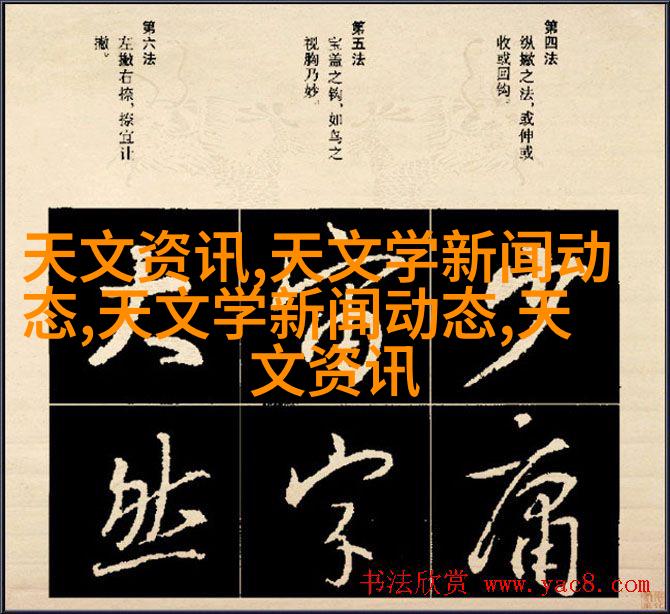 第四法
纵撇之法，或伸或
收或回钩。
第五法
宝盖之钩，如鸟之
视胸乃妙。
第六法
左撇右捺，捺宜让
撇。
天文资讯,天文学新闻动
态,天文学新闻动态,天
文资讯
少
庸
宙
字
大
然
书法欣赏 www.yac8.com